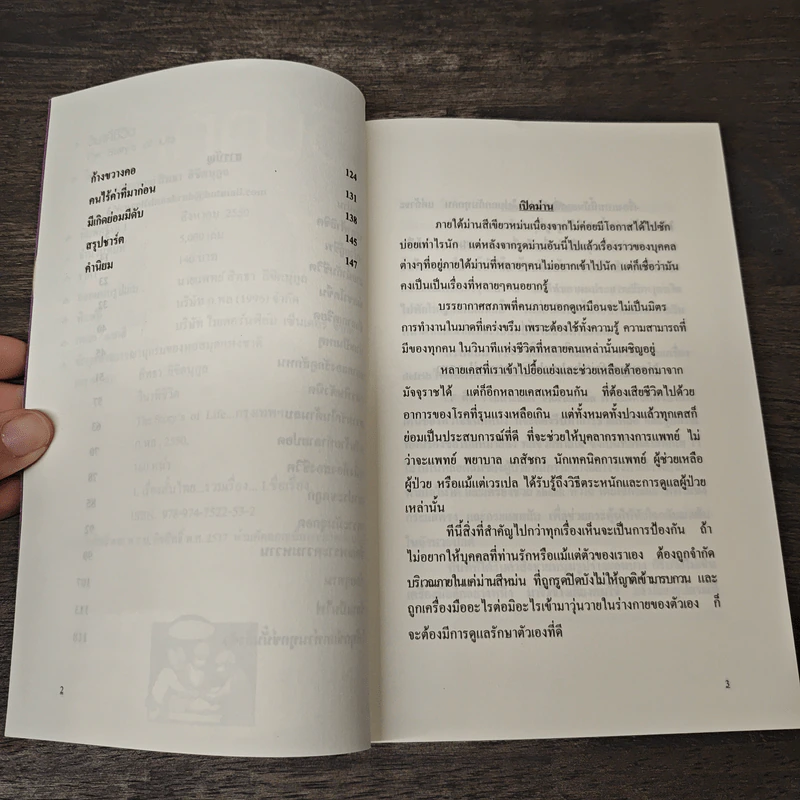 ก้างขวางคอ 124
คนไร้ค่าที่มาก่อน 131
มีเกิดย่อมมีดับ 138
สรุปชาร์ต 145
คำนิยม 147
2
เปิดม่าน
ภายใต้ม่านสีเขียวหม่นเนื่องจากไม่ค่อยมีโอกาสได้ไปซัก
บ่อยเท่าไรนัก แต่หลังจากรูดม่านอันนี้ไปแล้วเรื่องราวของบุคคล
ต่างๆที่อยู่ภายใต้ม่านที่หลายๆคนไม่อยากเข้าไปนัก แต่ก็เชื่อว่ามัน
คงเป็นเป็นเรื่องที่หลายๆคนอยากรู้
บรรยากาศสภาพที่คนภายนอกดูเหมือนจะไม่เป็นมิตร
การทำงานในมาดที่เคร่งขรึม เพราะต้องใช้ทั้งความรู้ ความสามารถที่
มีของทุกคน ในวินาทีแห่งชีวิตที่หลายคนเหล่านั้นเผชิญอยู่
หลายเคสที่เราเข้าไปยื้อแย่งและช่วยเหลือเค้าออกมาจาก
มัจจุราชได้ แต่ก็อีกหลายเคสเหมือนกัน ที่ต้องเสียชีวิตไปด้วย
อาการของโรคที่รุนแรงเหลือเกิน แต่ทั้งหมดทั้งปวงแล้วทุกเคสก็
ย่อมเป็นประสบการณ์ที่ดี ที่จะช่วยให้บุคลากรทางการแพทย์ ไม่
ว่าจะแพทย์ พยาบาล เภสัชกร นักเทคนิคการแพทย์ ผู้ช่วยเหลือ
ผู้ป่วย หรือแม้แต่เวรเปล ได้รับรู้ถึงวิธีตระหนักและการดูแลผู้ป่วย
เหล่านั้น
ทีนี้สิ่งที่สำคัญไปกว่าทุกเรื่องเห็นจะเป็นการป้องกัน ถ้า
ไม่อยากให้บุคคลที่ท่านรักหรือแม้แต่ตัวของเราเอง ต้องถูกจำกัด
บริเวณภายในแค่ม่านสีหม่น ที่ถูกรูดปิดบังไม่ให้ญาติเข้ามารบกวน และ
ถูกเครื่องมืออะไรต่อมิอะไรเข้ามาวุ่นวายในร่างกายของตัวเอง ก็
จะต้องมีการดูแลรักษาตัวเองที่ดี
3